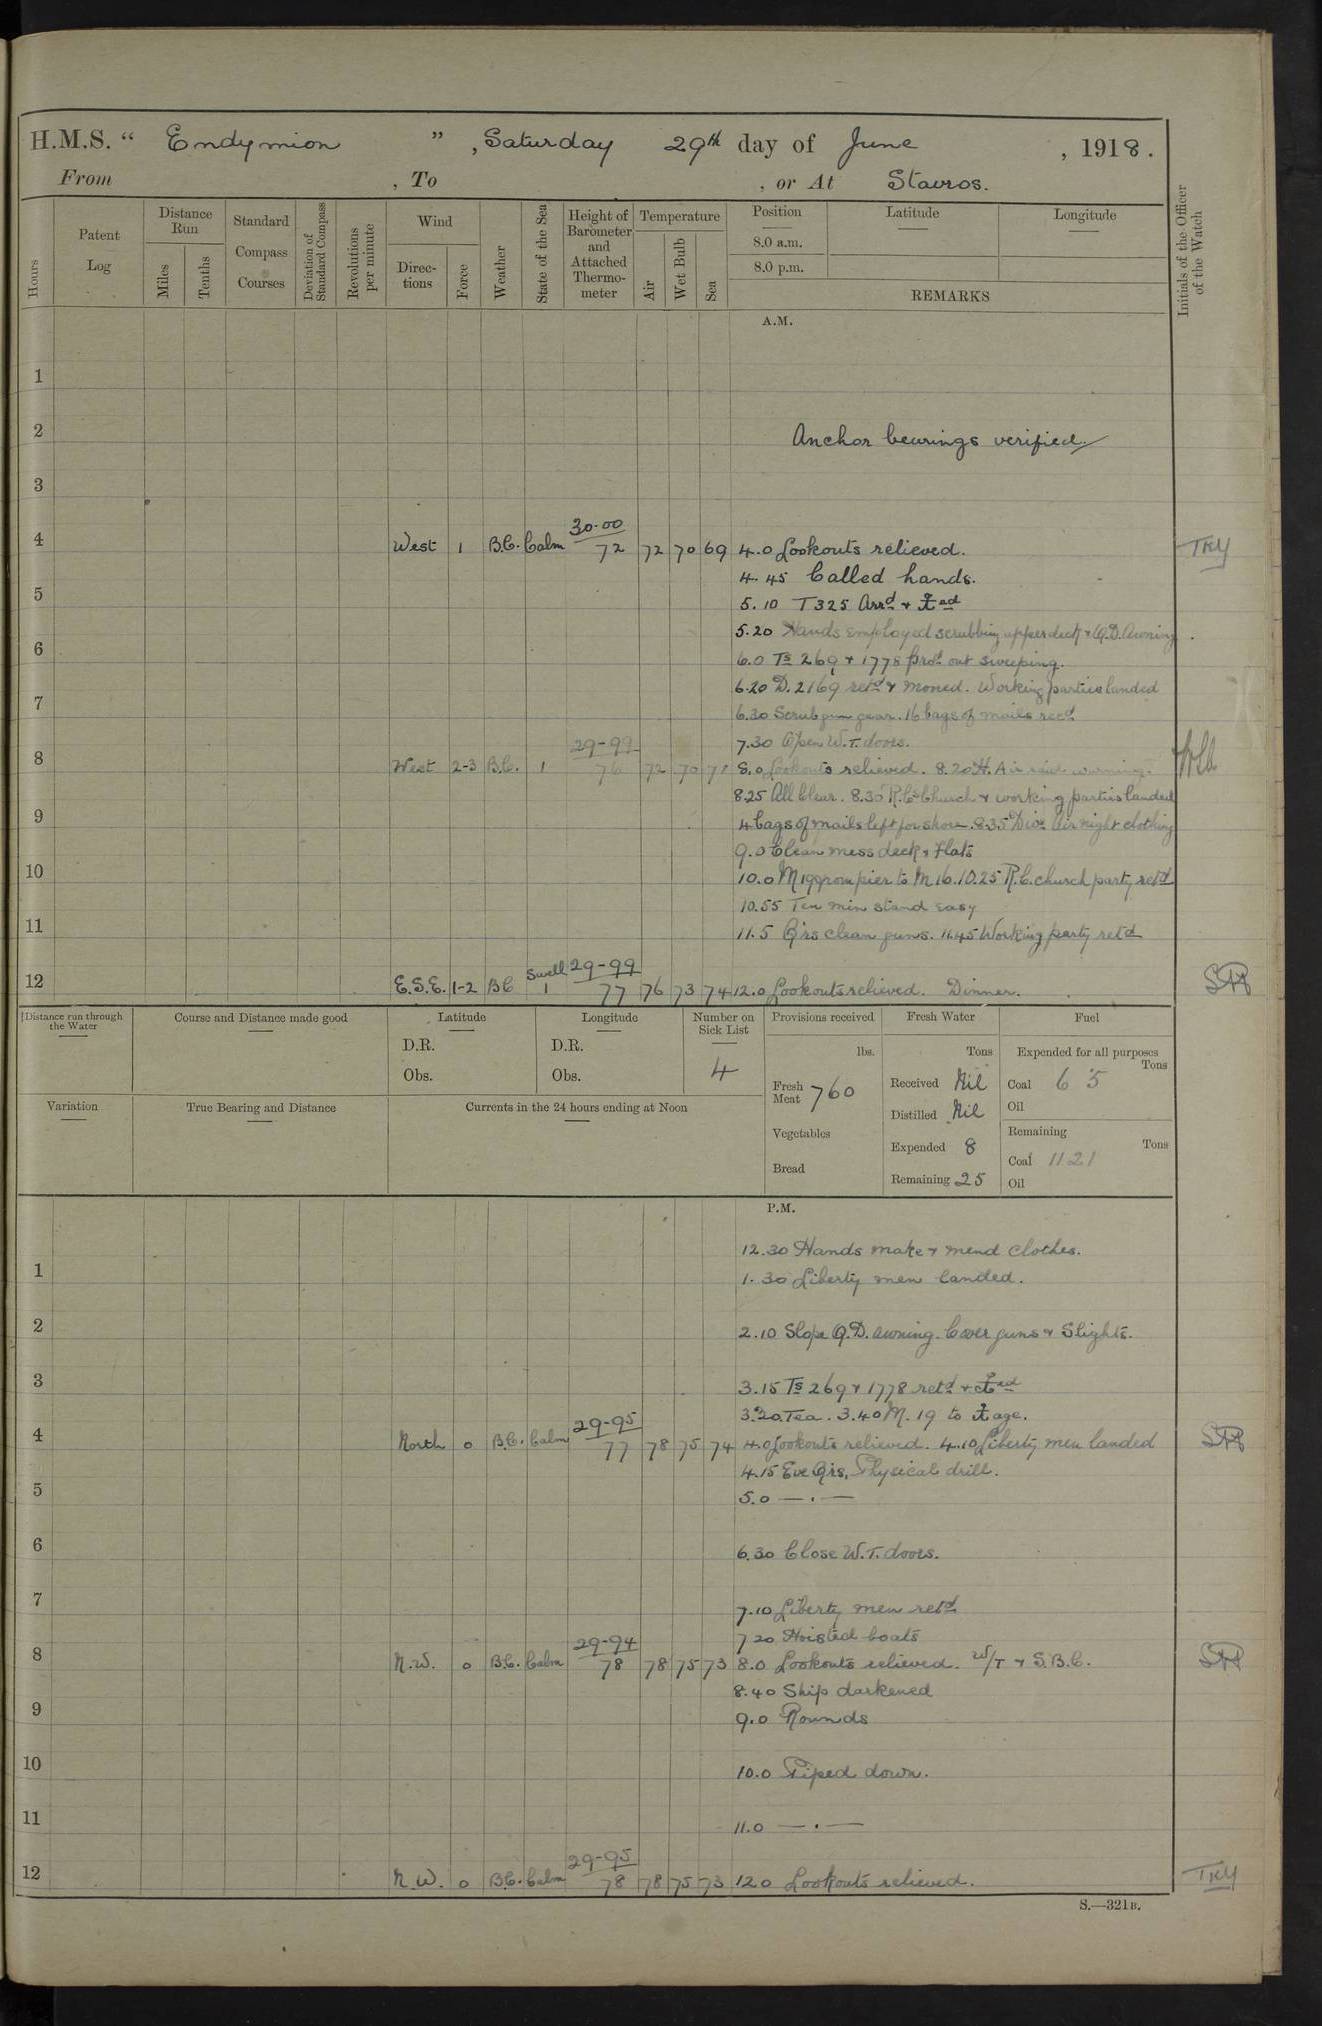 H.M.S. “ Endymion ” , Saturday 29th day of June , 1918.
From , To , or At Stavros.
Hours
Patent Log
Distance Run
Miles
Tenths
Standard Compass Courses
Deviation of Standard Compass
Revolutions per minute
Wind
Directions
Force
Weather
State of the Sea
Height of Barometer and Attached Thermometer
Temperature
Air
Wet Bulb
Sea
Position
8.0 a.m.
8.0 p.m.
Latitude
Longitude
REMARKS
Initials of the Officer of the Watch
A.M.
1
2 Anchor bearings verified.
3
30.00
4 West 1 B.C. Calm 72 72 70 69 4.0 Lookouts relieved. TKY
4.45 Called hands.
5
5.10 T 325 Arrd &
5.20 Hands employed scrubbing upper deck & Q.D. Awning.
6
6.0 Ts 269 & 1778 out sweeping.
6.20 D. 2169 retd & moored. Working parties landed
7
6.30 Scrub gun gear. 16 bags of mails recd
7.30 Open W.T. doors.
29-99
8 West 2-3 B.C. 1 76 72 70 71 8.0 Lookouts relieved. 8.20 H. Air raid warning.
8.25 All Clear. 8.30 R.C. Church & working parties landed
9
4 bags of mails left for shore. 8.35 Divs Air night clothing
9.0 Clean mess deck & Flats
10
10.0 M 19 from pier to M 16. 10.25 R.C. church party retd
10.55 Ten min stand easy
11
11.5 Qrs clean guns. 11.45 Working party retd
Swell 29-99
12 E.S.E. 1-2 BC 1 77 76 73 74 12.0 Lookouts relieved. Dinner.
Distance run through the Water
Course and Distance made good
Latitude
D.R.
Obs.
Longitude
D.R.
Obs.
Number on Sick List
4
Provisions received
lbs.
Fresh Meat 760
Vegetables
Bread
Fresh Water
Tons
Received Nil
Distilled Nil
Expended 8
Remaining 25
Fuel
Expended for all purposes
Tons
Coal 6.5
Oil
Remaining
Tons
Coal 1121
Oil
Variation
True Bearing and Distance
Currents in the 24 hours ending at Noon
P.M.
12.30 Hands make & mend clothes.
1
1.30 Liberty men landed.
2
2.10 Slope Q.D. awning. Cover guns & Slights.
3
3.15 Ts 269 & 1778 retd &
3.20 Tea. 3.40 M. 19 to
29-95
4 North 0 B.C. Calm 77 78 75 74 4.0 Lookouts relieved. 4.10 Liberty men landed
4.15 Eve Qrs, Physical drill.
5
5.0 — . —
6
6.30 Close W.T. doors.
7
7.10 Liberty men retd
7.20 Hoisted boats
29-94
8 N.W. 0 B.C. Calm 78 78 75 73 8.0 Lookouts relieved. W/T & S.B.C.
8.40 Ship darkened
9
9.0 Rounds
10
10.0 Piped down.
11
11.0 — . —
29-95
12 N.W. 0 B.C. Calm 78 78 75 73 12.0 Lookouts relieved. TKY
S.—321B.